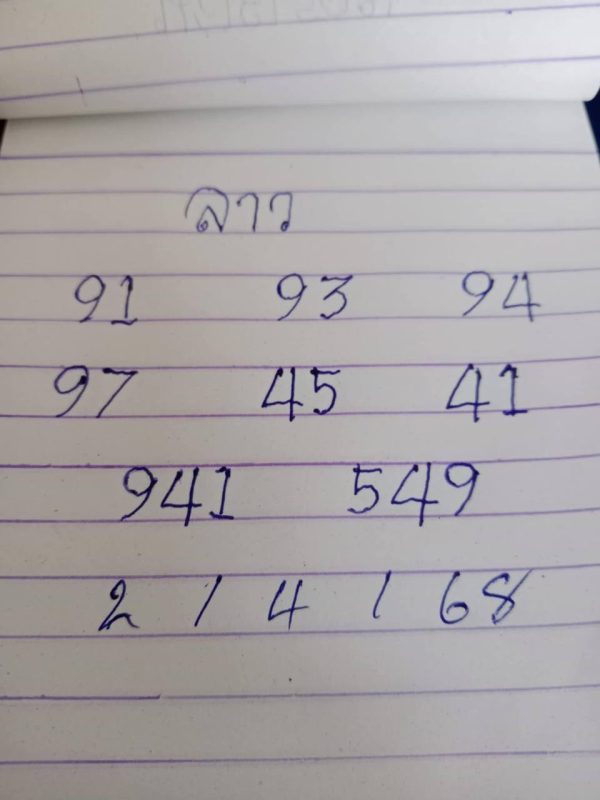 ลาว
91 93 94
97 45 41
941 549
2 / 4 / 68